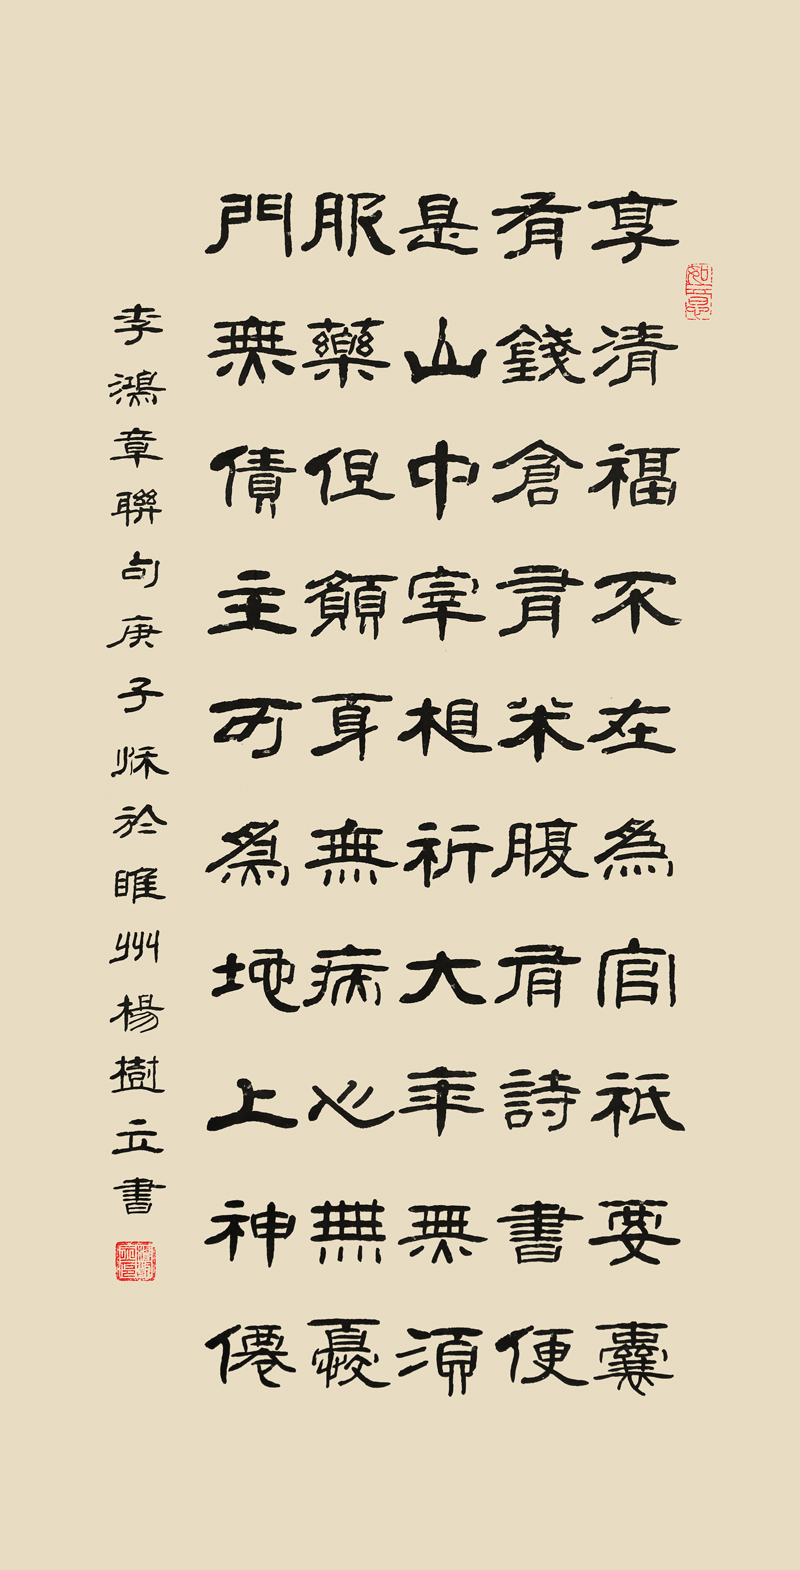 享清福不在為官祇要囊
有錢倉有米腹有詩書便
是山中宰相祈大年無須
服藥但願身無病心無憂
門無債主可為地上神僊
李鴻章聯句庚子秌於睢州楊樹立書
如意